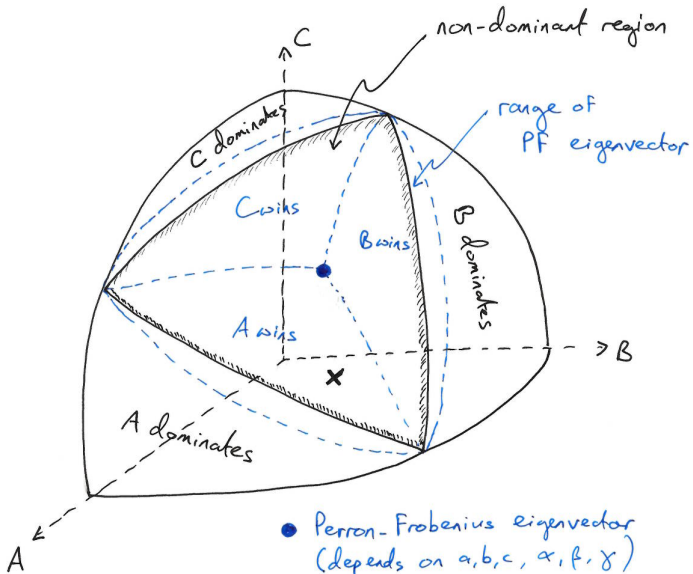 C
non-dominant region
range of
PF eigenvector
C dominates
C wins
B wins
B dominates
A wins
x
B
A dominates
A
Perron-Frobenius eigenvector
(depends on a, b, c, α, β, γ)